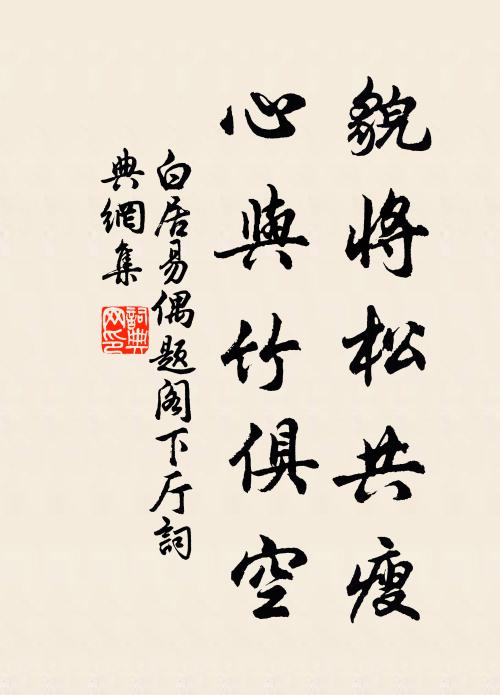 貌將松共瘦
心與竹俱空
白居易偶題阁下厅詞
典網集
詞典
网印